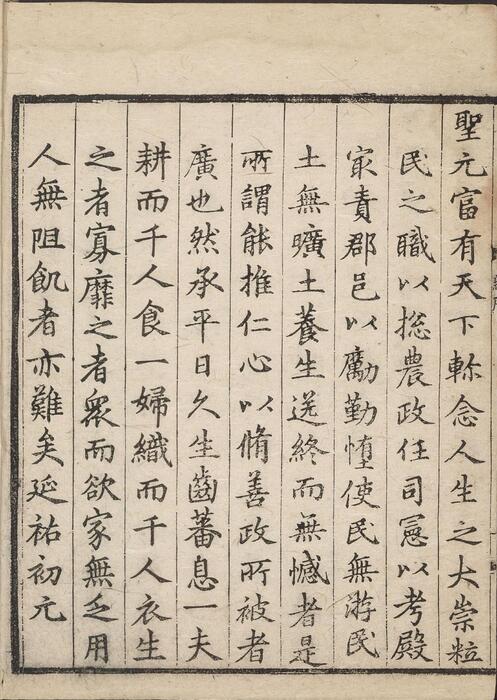 聖元富有天下軫念人生之大崇粒
民之職以揔農政任司憲以考殿
㝡責郡邑以勵勤惰使民無游民
土無曠土養生送終而無憾者是
所謂能推仁心以脩善政所被者
廣也然承平日久生齒蕃息一夫
耕而千人食一婦織而千人衣生
之者寡靡之者衆而欲家無乏用
人無阻飢者亦難矣延祐初元